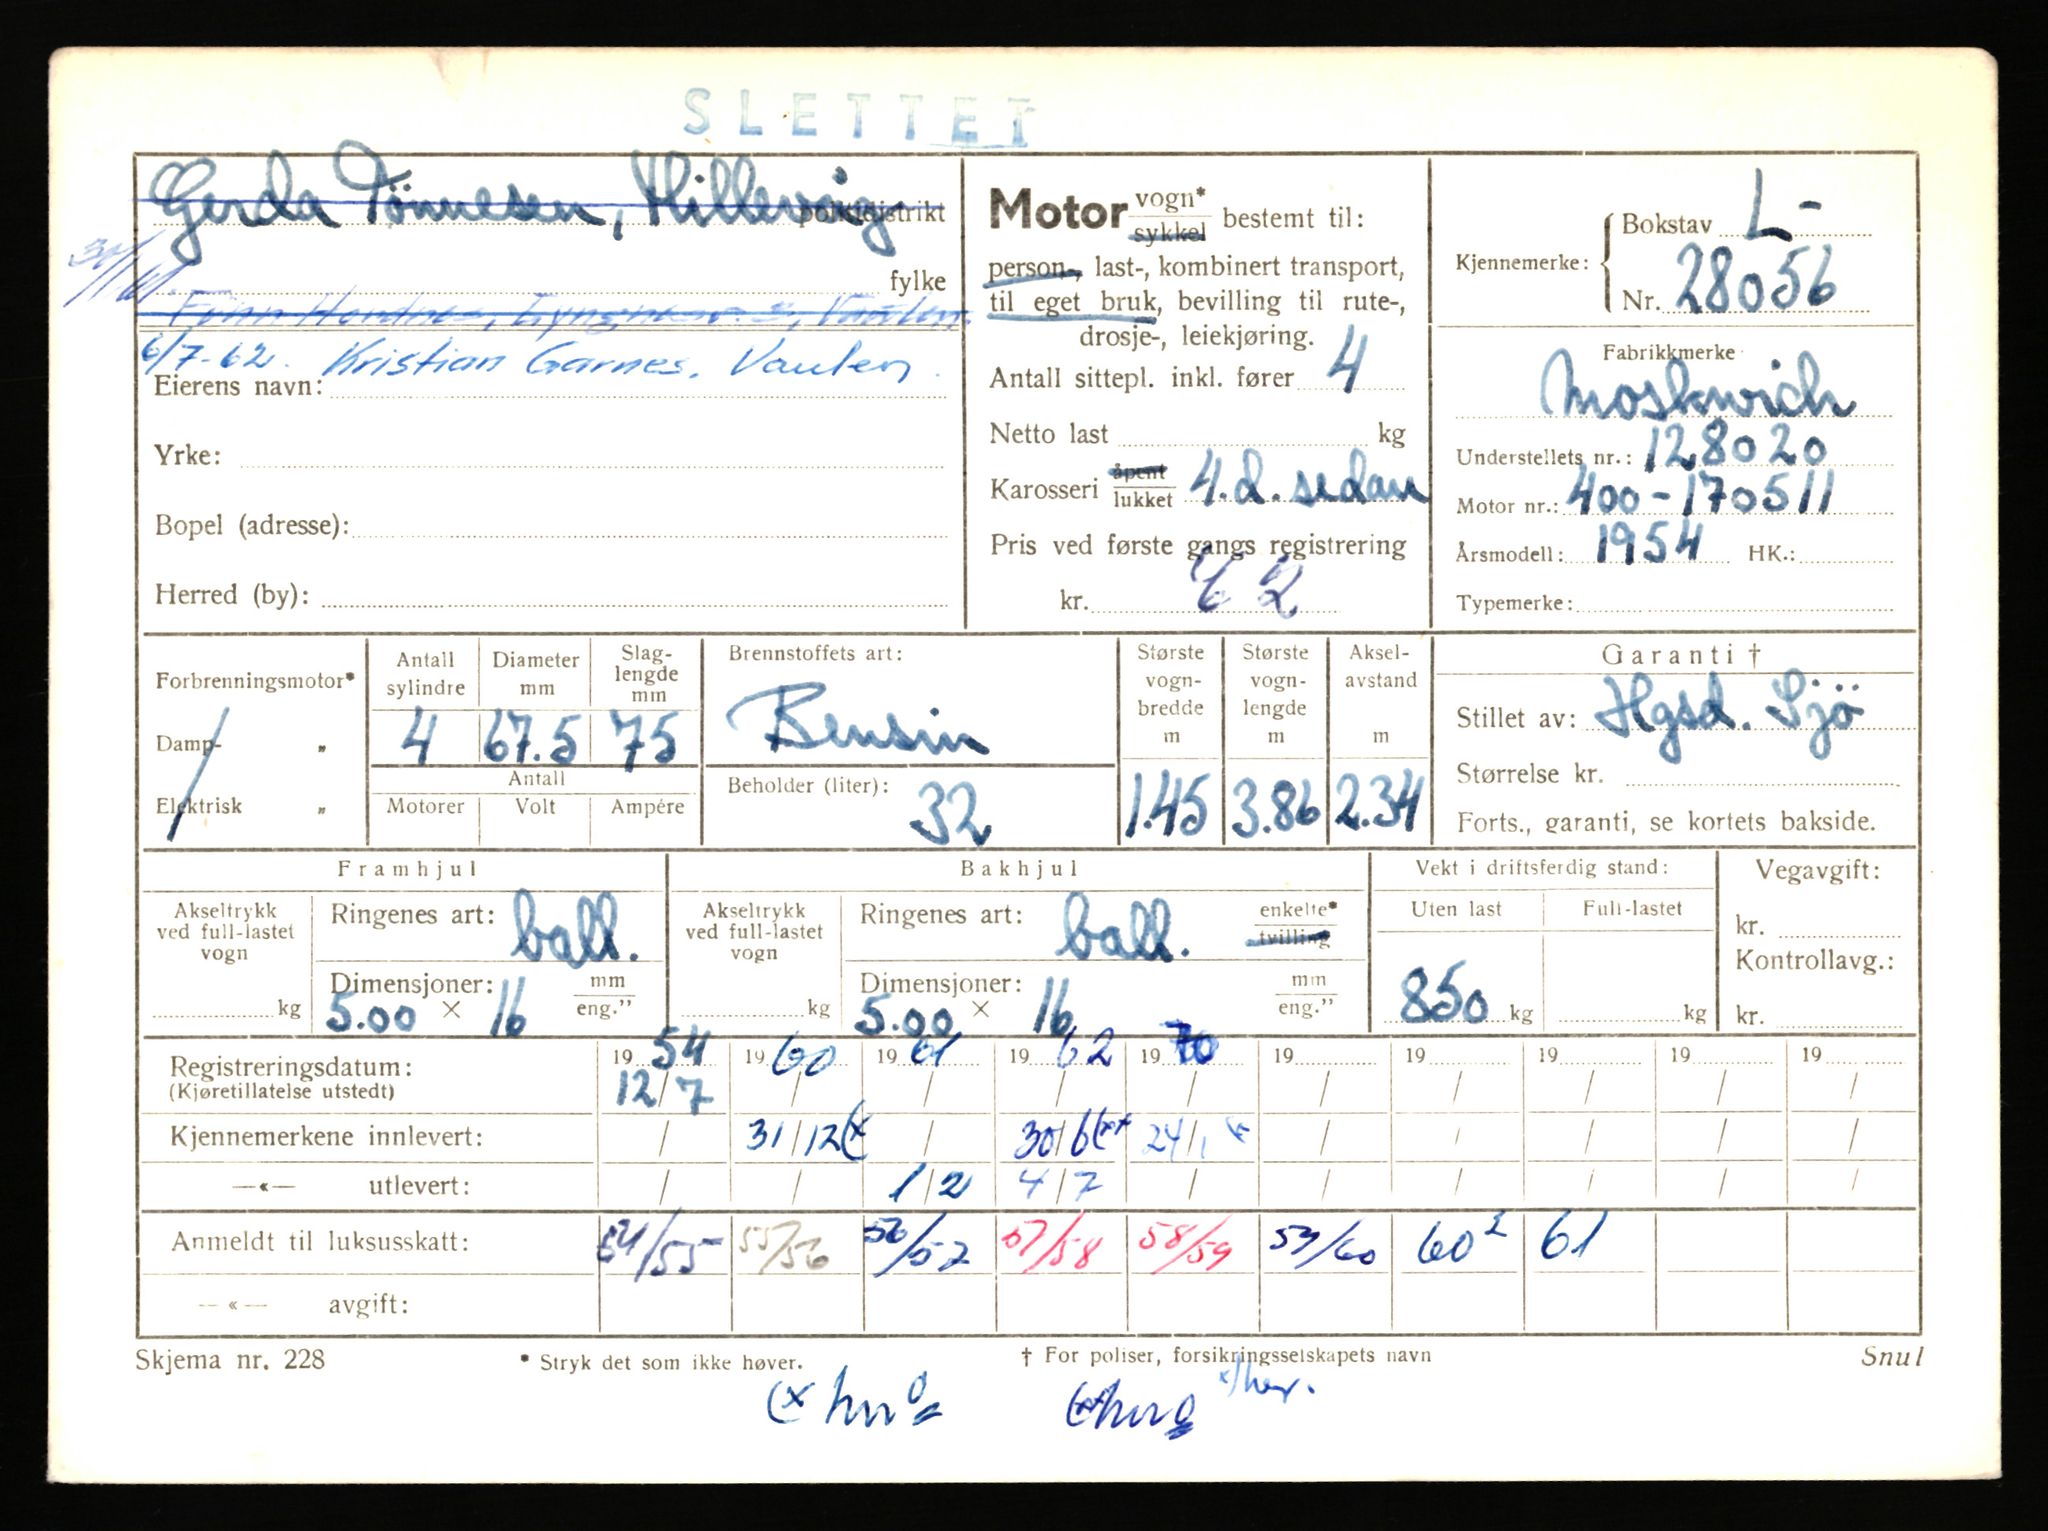 SLETTET
Gerda Tönnesen, Hillevåg politidistrikt
fylke
6/7-62. Kristian Garnes. Vaulen.
Eierens navn:
Yrke:
Bopel (adresse):
Herred (by):
Motor vogn* sykkel bestemt til:
person-, last-, kombinert transport,
til eget bruk, bevilling til rute-,
drosje-, leiekjøring.
Antall sittepl. inkl. fører 4
Netto last kg
Karosseri åpent lukket 4.d. sedan
Pris ved første gangs registrering
kr. 62
Kjennemerke: Bokstav L-
Nr. 28056
Fabrikkmerke
Moskwich
Understellets nr.: 128020
Motor nr.: 400-170511
Årsmodell: 1954 HK.:
Typemerke:
Forbrenningsmotor*
Damp- „
Elektrisk „
Antall sylindre Diameter mm Slaglengde mm
4 67.5 75
Antall
Motorer Volt Ampére
Brennstoffets art:
Bensin
Beholder (liter):
32
Største vogn-bredde m Største vogn-lengde m Aksel-avstand m
1.45 3.86 2.34
Garanti †
Stillet av: Hgsd. Sjö
Størrelse kr.
Forts., garanti, se kortets bakside.
Framhjul
Akseltrykk ved full-lastet vogn
kg
Ringenes art: ball.
Dimensjoner: mm
5.00 × 16 eng.”
Bakhjul
Akseltrykk ved full-lastet vogn
kg
Ringenes art: ball. enkelte* tvilling
Dimensjoner: mm
5.00 × 16 eng.”
Vekt i driftsferdig stand:
Uten last Full-lastet
850 kg kg
Vegavgift:
kr.
Kontrollavg.:
kr.
Registreringsdatum: 19 54 19 60 19 61 19 62 19 70 19 19 19 19 19
(Kjøretillatelse utstedt) 12/7 / / / / / / / / /
Kjennemerkene innlevert: / 31/12 (x / 30/6 (xx 24/1 / / / / /
—«— utlevert: / / 1/2 4/7 / / / / / /
Anmeldt til luksusskatt: 54/55 55/56 56/57 57/58 58/59 59/60 60² 61
—«— avgift:
Skjema nr. 228 * Stryk det som ikke høver. † For poliser, forsikringsselskapets navn Snul